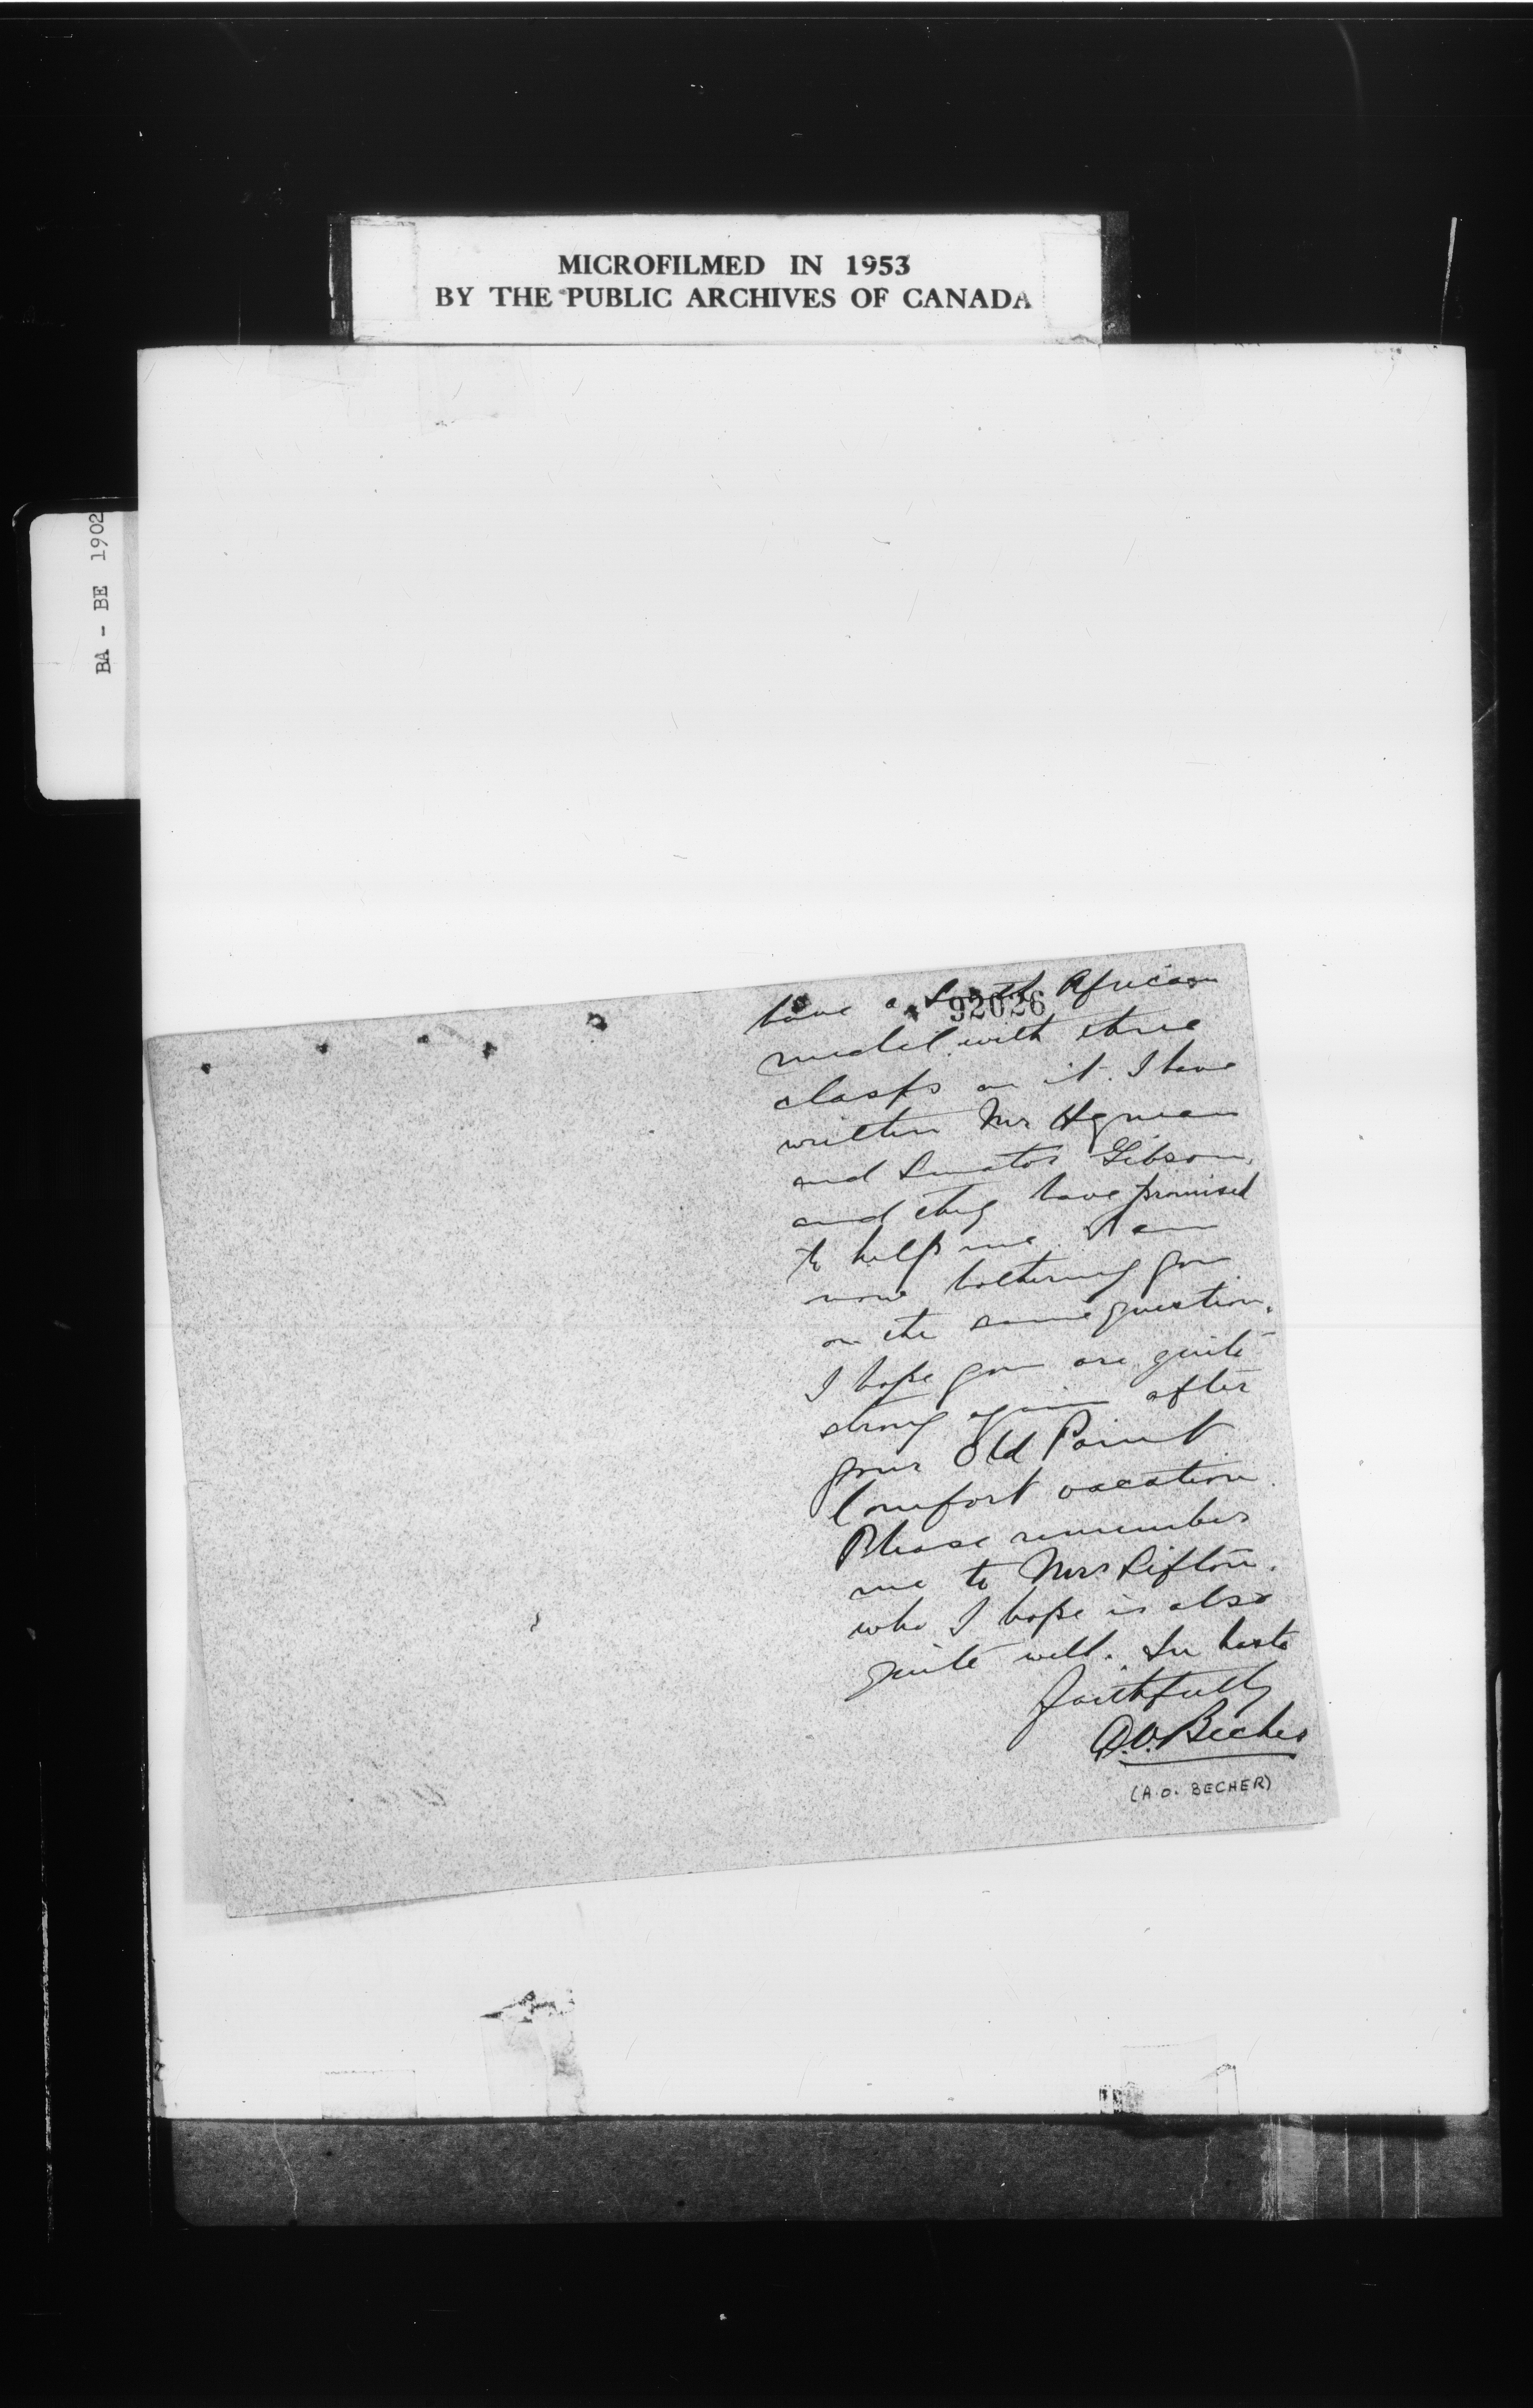 MICROFILMED IN 1953
BY THE PUBLIC ARCHIVES OF CANADA
BA - BE 1902
92026
have a South African
medal with three
clasps on it. I have
written Mr Hyman
and Senator Gibson,
and they have promised
to help me. I am
now bothering you
on the same question.
I hope you are quite
strong again after
your Old Point
Comfort vacation.
Please remember
me to Mrs Sifton.
who I hope is also
quite well. In haste
faithfully
A.O. Becher
(A.O. BECHER)